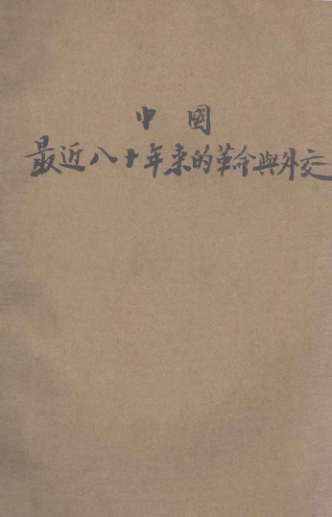 中國
最近八十年来的革命與外交